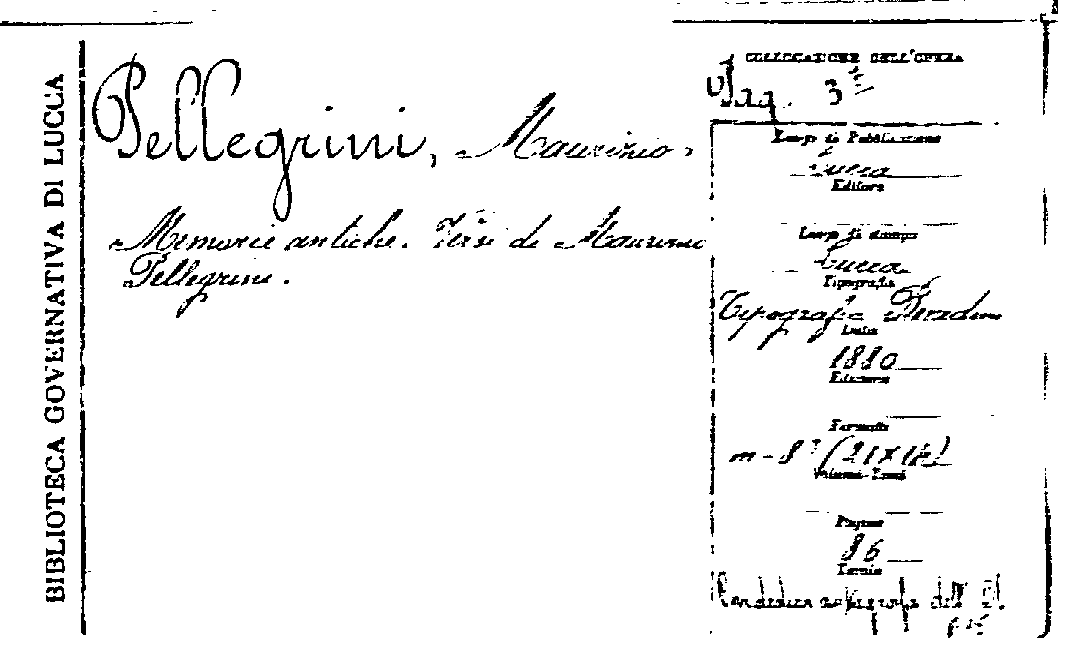 BIBLIOTECA GOVERNATIVA DI LUCCA
Pellegrini, Maurinio.
Memorie antiche. Versi di Maurinio
Pellegrini.
COLLOCAZIONE DELL'OPERA
3ª
Luogo di Pubblicazione
Lucca
Editore
Luogo di stampa
Lucca
Tipografia
Tipografia
Data
1880
Edizione
Formato
in-8° (21x14)
Volumi-Tomi
Pagine
86
autografa dell'